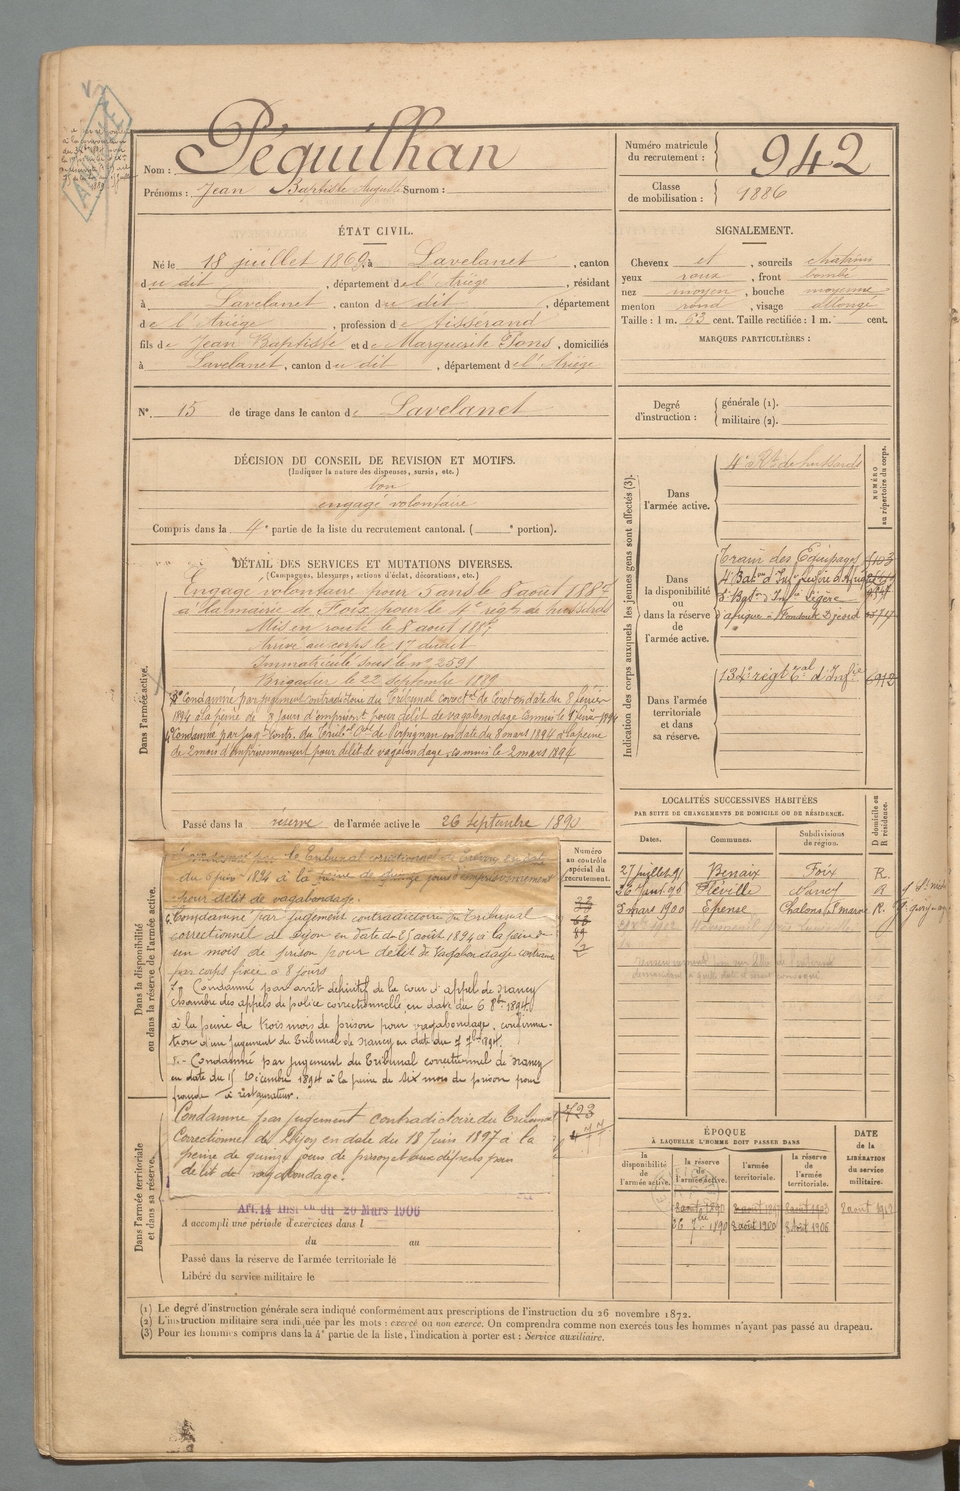 Péquilhan
Nom :
Prénoms : Jean Baptiste Auguste Surnom :
Numéro matricule du recrutement : 942
Classe de mobilisation : 1886
ÉTAT CIVIL.
Né le 18 juillet 1869 à Lavelanet, canton
du dit, département de l'Ariège, résidant
à Lavelanet, canton du dit, département
de l'Ariège, profession de Tisserand
fils de Jean Baptiste et de Marguerite Pons, domiciliés
à Lavelanet, canton du dit, département de l'Ariège
N°. 15 de tirage dans le canton de Lavelanet
SIGNALEMENT.
Cheveux et, sourcils chatains
yeux roux, front bombé
nez moyen, bouche moyenne
menton rond, visage allongé
Taille : 1 m. 63 cent. Taille rectifiée : 1 m. cent.
MARQUES PARTICULIÈRES :
Degré d'instruction : générale (1).
militaire (2).
DÉCISION DU CONSEIL DE REVISION ET MOTIFS.
(Indiquer la nature des dispenses, sursis, etc.)
bon
engagé volontaire
Compris dans la 4e partie de la liste du recrutement cantonal. ( e portion).
DÉTAIL DES SERVICES ET MUTATIONS DIVERSES.
(Campagnes, blessures, actions d'éclat, décorations, etc.)
Dans l'armée active.
Engagé volontaire pour 5 ans le 8 août 1887
à la mairie de Foix pour le 4e régt de hussards
Mis en route le 8 août 1887
Arrivé au corps le 17 du dit
Immatriculé sous le n° 2591
Brigadier le 22 septembre 1889
Condamné par jugement contradictoire du Tribunal correctel de Céret en date du 8 février
1894 à la peine de 3 jours d'emprisont pour délit de vagabondage commis le 8 février 1894
Condamné par jugt contr. du Tribal Corel de Perpignan en date du 8 mars 1894 à la peine
de 2 mois d'emprisonnement pour délit de vagabondage commis le 2 mars 1894
Passé dans la réserve de l'armée active le 26 septembre 1890
Dans la disponibilité ou dans la réserve de l'armée active.
Numéro au contrôle spécial du recrutement.
condamné par le Tribunal correctionnel de en date
du 6 juin 1894 à la peine de quinze jours d'emprisonnement
pour délit de vagabondage.
Condamné par jugement contradictoire du Tribunal
correctionnel de Dijon en date du 25 août 1894 à la peine de
un mois de prison pour délit de vagabondage contrainte
par corps fixée à 8 jours
Condamné par arrêt définitif de la cour d'appel de Nancy
chambre des appels de police correctionnelle, en date du 6 8bre 1894
à la peine de trois mois de prison pour vagabondage, confirma-
tion d'un jugement du Tribunal de Nancy en date du 7 7bre 1894.
Condamné par jugement du Tribunal correctionnel de Nancy
en date du 15 Décembre 1894 à la peine de six mois de prison pour
fraude à restaurateur.
Condamné par jugement contradictoire du Tribunal
Correctionnel de Dijon en date du 18 Juin 1897 à la
peine de quinze jours de prison et aux dépens pour
délit de vagabondage.
Dans l'armée territoriale et dans sa réserve.
Art. 14 Inston du 20 Mars 1906
A accompli une période d'exercices dans l
du au
Passé dans la réserve de l'armée territoriale le
Libéré du service militaire le
Indication des corps auxquels les jeunes gens sont affectés (3).
NUMÉRO au répertoire du corps.
Dans l'armée active.
4e Rt de hussards
Dans la disponibilité ou dans la réserve de l'armée active.
Train des Equipages
4e Baton d'Infie légère d'Afrique
5e Baton d'Infie légère
d'afrique
Dans l'armée territoriale et dans sa réserve.
134e régt Tal d'Infie 6912
LOCALITÉS SUCCESSIVES HABITÉES
PAR SUITE DE CHANGEMENTS DE DOMICILE OU DE RÉSIDENCE.
Dates. Communes. Subdivisions de région. D domicile ou R résidence.
27 juillet 91 Benaix Foix R.
26 Janv. 96 Fléville Nancy R
5 mars 1900 Epense Chalons s/ Marne R.
ÉPOQUE
À LAQUELLE L'HOMME DOIT PASSER DANS
la disponibilité de l'armée active.
la réserve de l'armée active.
l'armée territoriale.
la réserve de l'armée territoriale.
DATE de la LIBÉRATION du service militaire.
8 août 1890
26 7bre 1890 8 août 1900 8 Août 1906 8 août 1912
(1) Le degré d'instruction générale sera indiqué conformément aux prescriptions de l'instruction du 26 novembre 1872.
(2) L'instruction militaire sera indiquée par les mots : exercé ou non exercé. On comprendra comme non exercés tous les hommes n'ayant pas passé au drapeau.
(3) Pour les hommes compris dans la 4e partie de la liste, l'indication à porter est : Service auxiliaire.